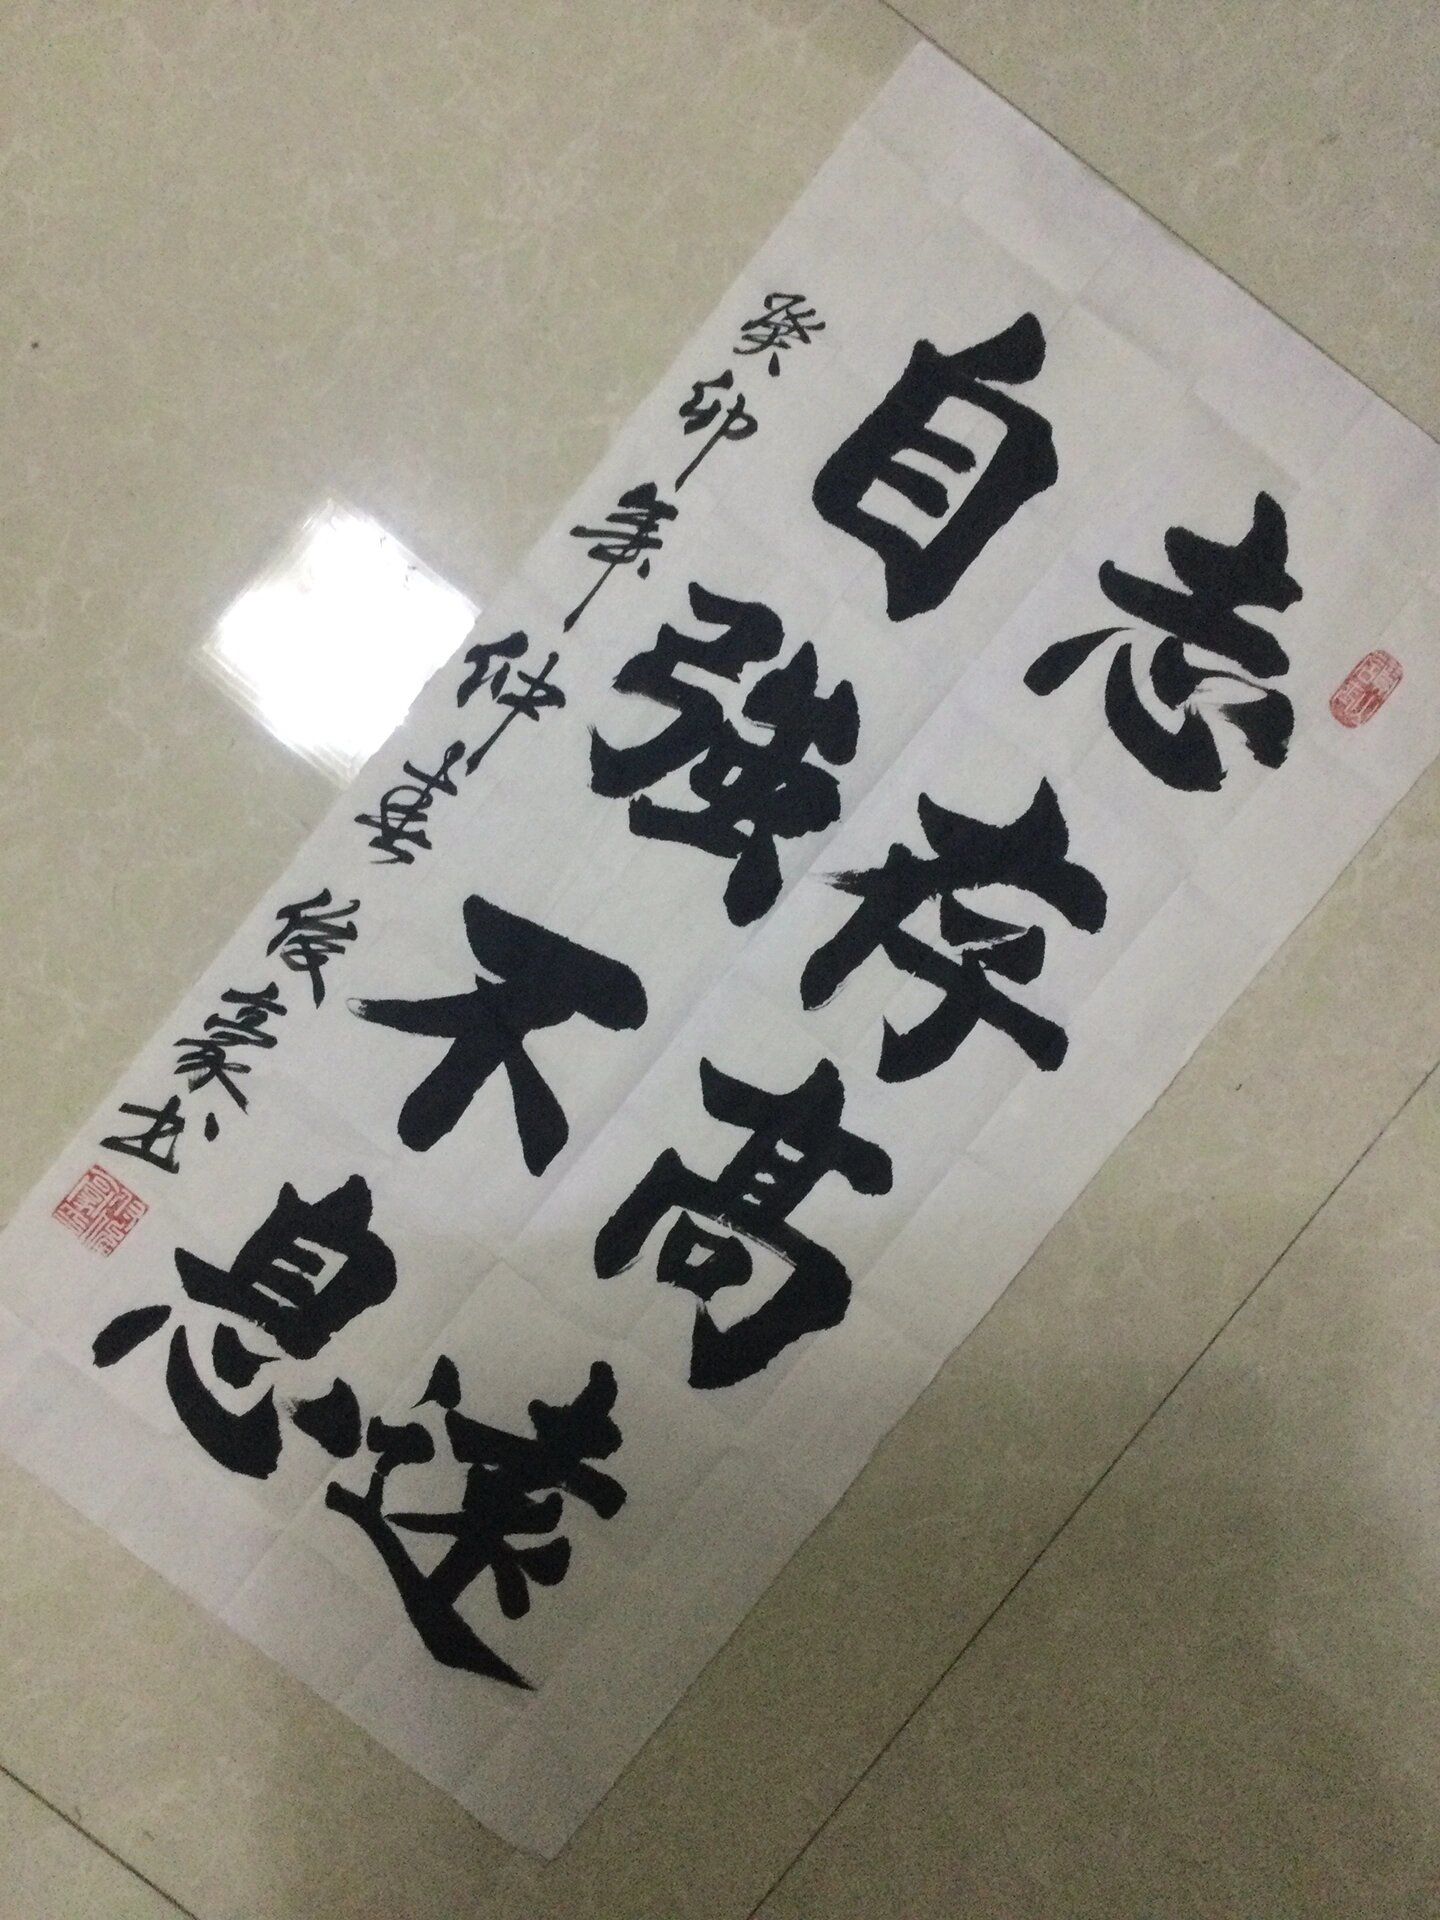 志存高遠
自強不息
癸卯年仲春俊豪书